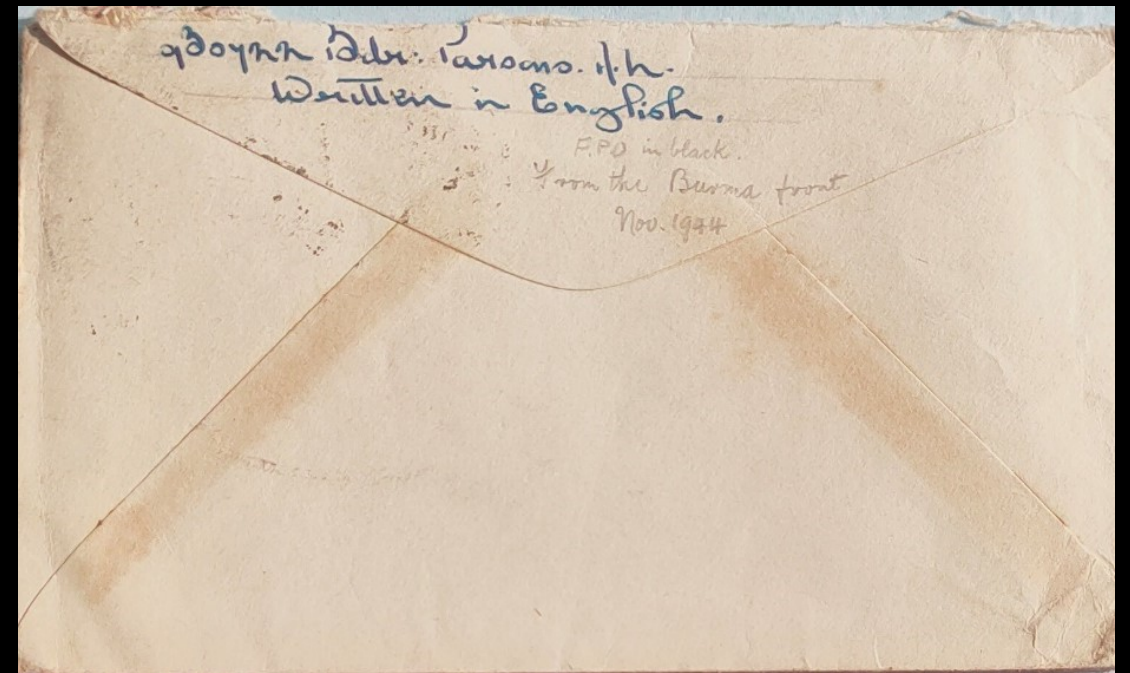 Bdr. Parsons. H.
Written in English.
F.P.O in black.
From the Burma front
Nov. 1944